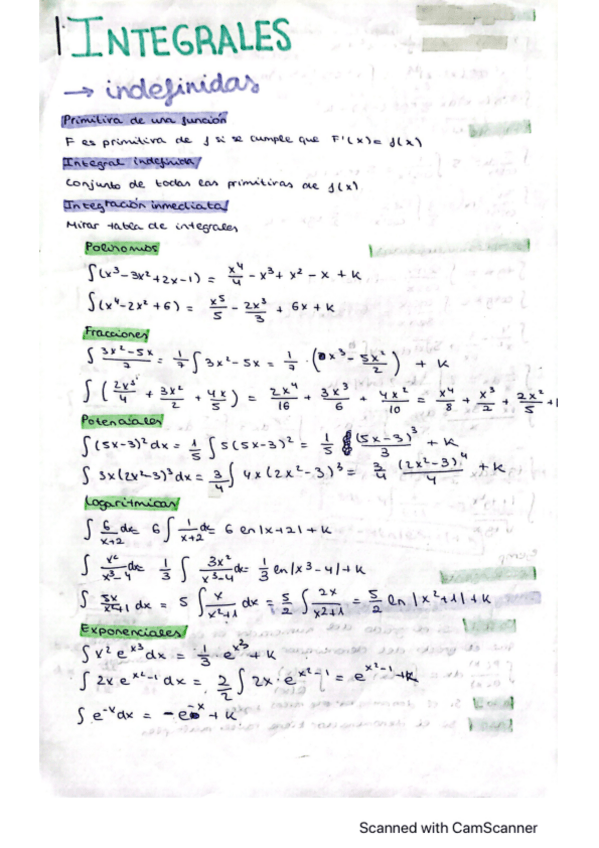 INTEGRALES
→ indefinidas
Primitiva de una función
F es primitiva de f si se cumple que F'(x) = f(x)
Integral indefinida
Conjunto de todas las primitivas de f(x)
Integración inmediata
Mirar tabla de integrales
Polinomios
∫(x³-3x²+2x-1) = x⁴/4 - x³ + x² - x + K
∫(x⁴-2x²+6) = x⁵/5 - 2x³/3 + 6x + K
Fracciones
∫ 3x²-5x/7 = 1/7 ∫ 3x²-5x = 1/7 · (x³ - 5x²/2) + K
∫ (2x³/4 + 3x²/2 + 4x/5) = 2x⁴/16 + 3x³/6 + 4x²/10 = x⁴/8 + x³/2 + 2x²/5 +
Potenciales
∫(5x-3)²dx = 1/5 ∫ 5(5x-3)² = 1/5 (5x-3)³/3 + K
∫ 3x(2x²-3)³dx = 3/4 ∫ 4x(2x²-3)³ = 3/4 (2x²-3)⁴/4 + K
Logarítmicas
∫ 6/x+2 dx = 6 ∫ 1/x+2 dx = 6 ln|x+2| + K
∫ x²/x³-4 dx = 1/3 ∫ 3x²/x³-4 dx = 1/3 ln|x³-4| + K
∫ 5x/x²+1 dx = 5 ∫ x/x²+1 dx = 5/2 ∫ 2x/x²+1 = 5/2 ln|x²+1| + K
Exponenciales
∫ x² e^x³ dx = 1/3 e^x³ + K
∫ 2x e^x²-1 dx = 2/2 ∫ 2x · e^x²-1 = e^x²-1 + K
∫ e^-x dx = -e^-x + K
Scanned with CamScanner